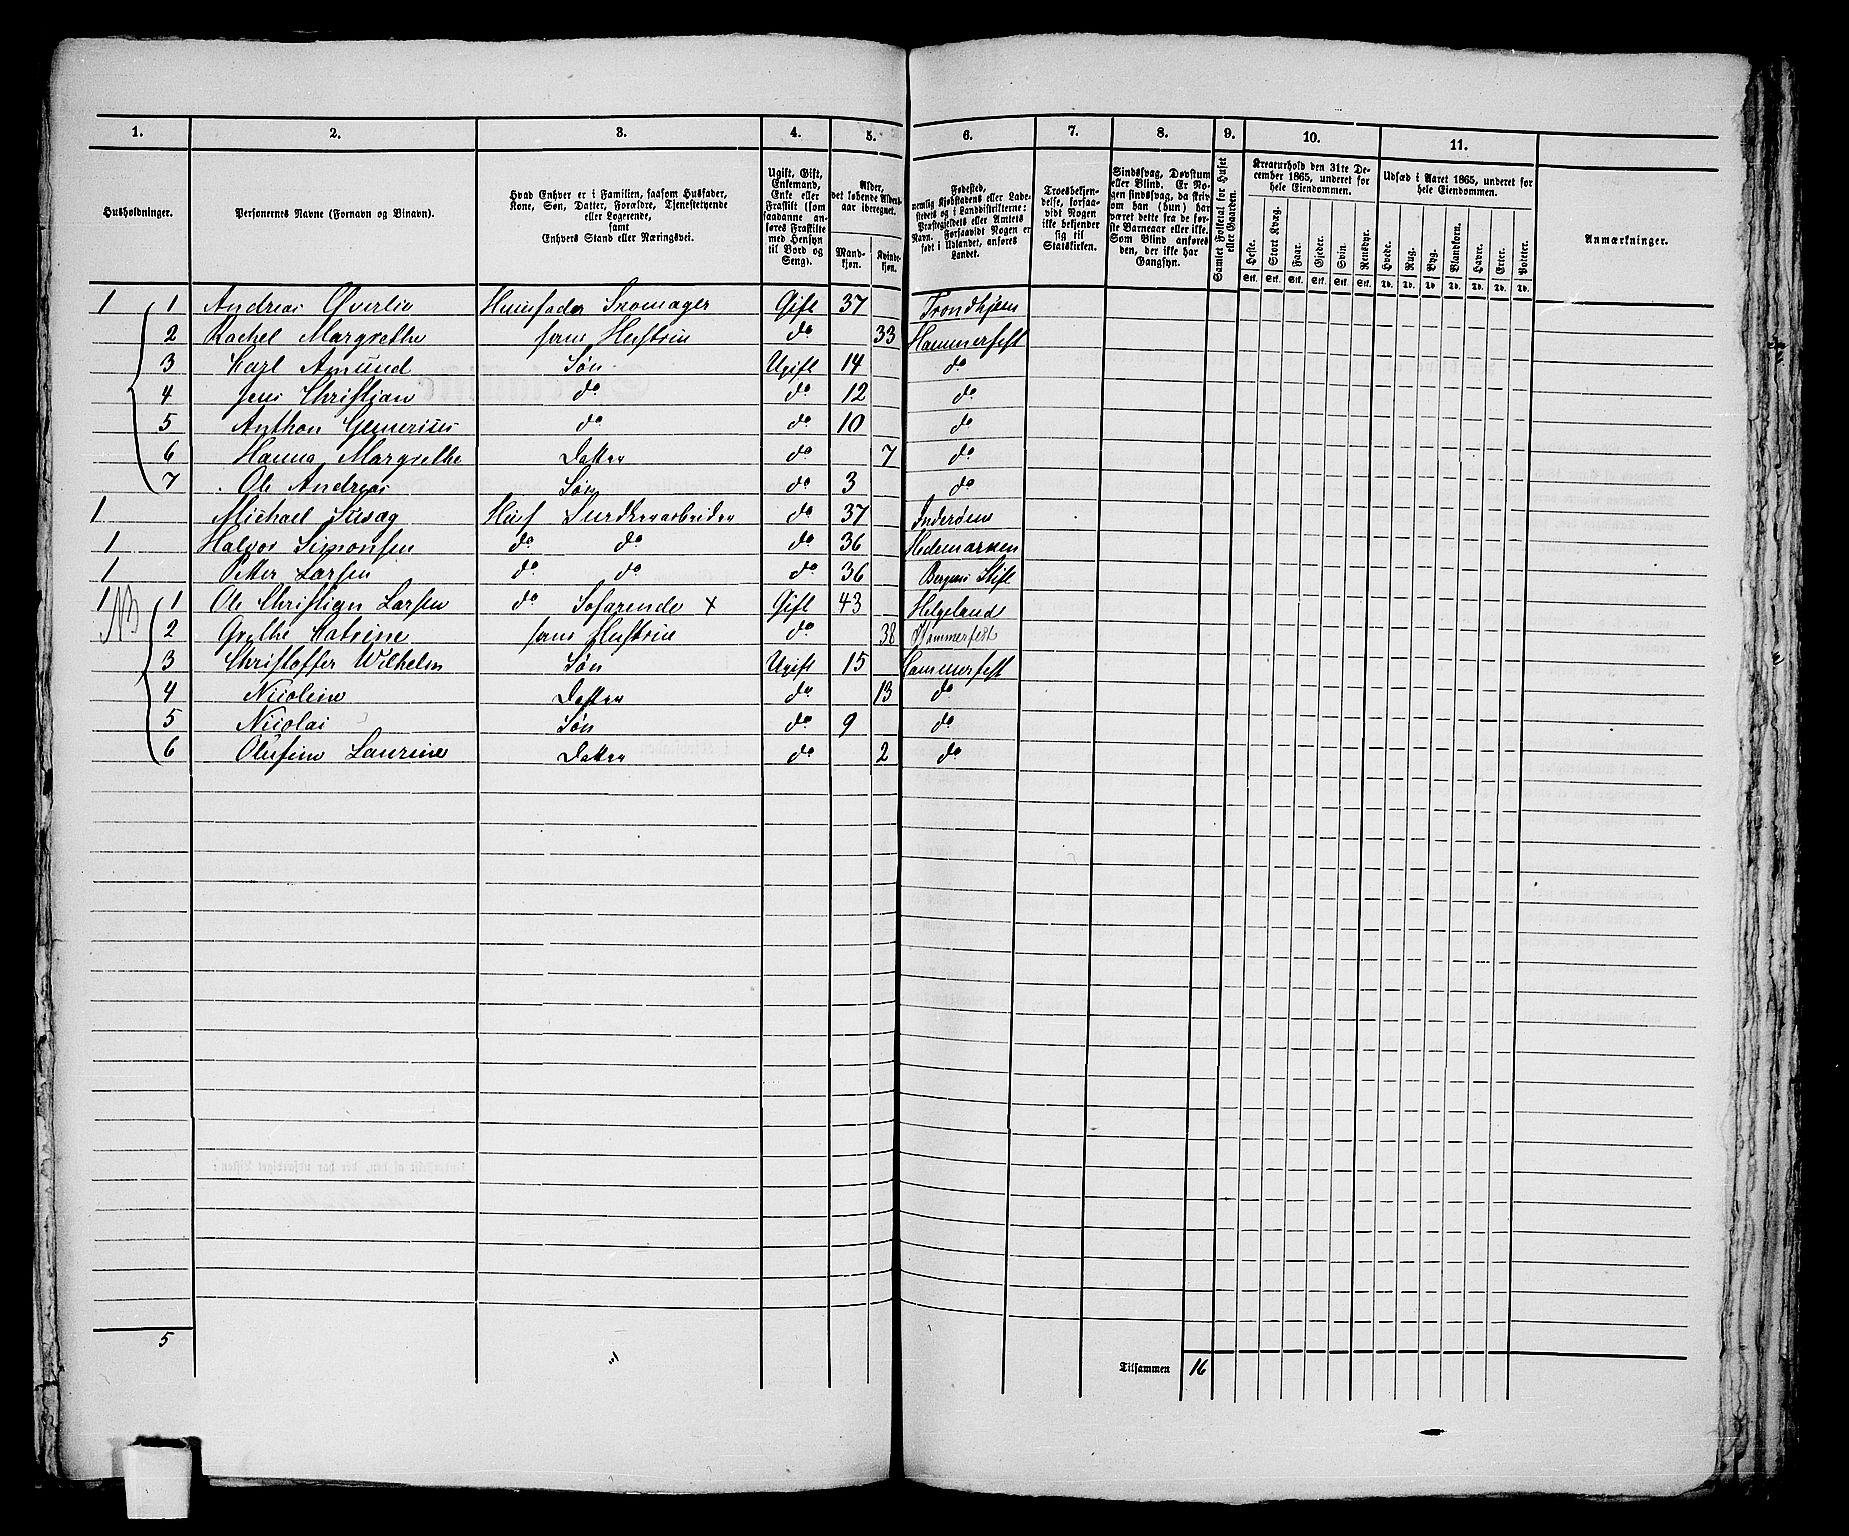 1. 2. 3. 4. 5. 6. 7. 8. 9. 10. 11.
Husholdninger.
Personernes Navne (Fornavn og Binavn).
Hvad Enhver er i Familien, saasom Husfader,
Kone, Søn, Datter, Forældre, Tjenestetyende
eller Logerende,
samt
Enhvers Stand eller Næringsvei.
Ugift, Gift,
Enkemand,
Enke eller
Fraskilt (som
saadanne an-
føres Fraskilte
med Hensyn
til Bord og
Seng).
Alder,
det løbende Alders-
aar iberegnet.
Mand-
kjøn.
Kvinde-
kjøn.
Fødested,
nemlig Kjøbstadens eller Lade-
stedets og i Landdistrikterne:
Præstegjeldets eller Amtets
Navn. Forsaavidt Nogen er
født i Udlandet, anføres
Landet.
Troesbekjen-
delse, forsaa-
vidt Nogen
ikke bekjender
sig til
Statskirken.
Sindssvag, Døvstum
eller Blind. Er No-
gen sindssvag, da skriv
om han (hun) har
været dette fra de før-
ste Barneaar eller ikke.
Som Blind anføres
den, der ikke har
Gangsyn.
Samlet Folketal for Huset
eller Gaarden.
Kreaturhold den 31te De-
cember 1865, underet for
hele Eiendommen.
Heste. Stort Kvæg. Faar. Gjeder. Svin. Rensdyr.
Stk. Stk. Stk. Stk. Stk. Stk.
Udsæd i Aaret 1865, underet for
hele Eiendommen.
Hvede. Rug. Byg. Blandkorn. Havre. Erter. Poteter.
Td. Td. Td. Td. Td. Td. Td.
Anmærkninger.
1 1 Andreas Øverlie Huusfader Skomager Gift 37 Trondhjem
2 Rachel Margrethe hans Hustrue do 33 Hammerfest
3 Karl Amund Søn Ugift 14 do
4 Jens Christian do do 12 do
5 Anthon do do 10 do
6 Hanna Margrethe Datter do 7 do
7 Ole Andreas Søn do 3 do
1 Michael Husf do 37 Inderøen
1 Halvor Simonsen do do do 36 Hedemarken
1 Petter Larsen do do do 36 Bergens Stift
1 1 Ole Christian Larsen do Søfarende x Gift 43 Helgeland
NB 2 Grethe Katrine hans Hustrue do 38 Hammerfest
3 Christoffer Wilhelm Søn Ugift 15 Hammerfest
4 Nicoline Datter do 13 do
5 Nicolai Søn do 9 do
6 Olufine Laurine Datter do 2 do
5
Tilsammen 16